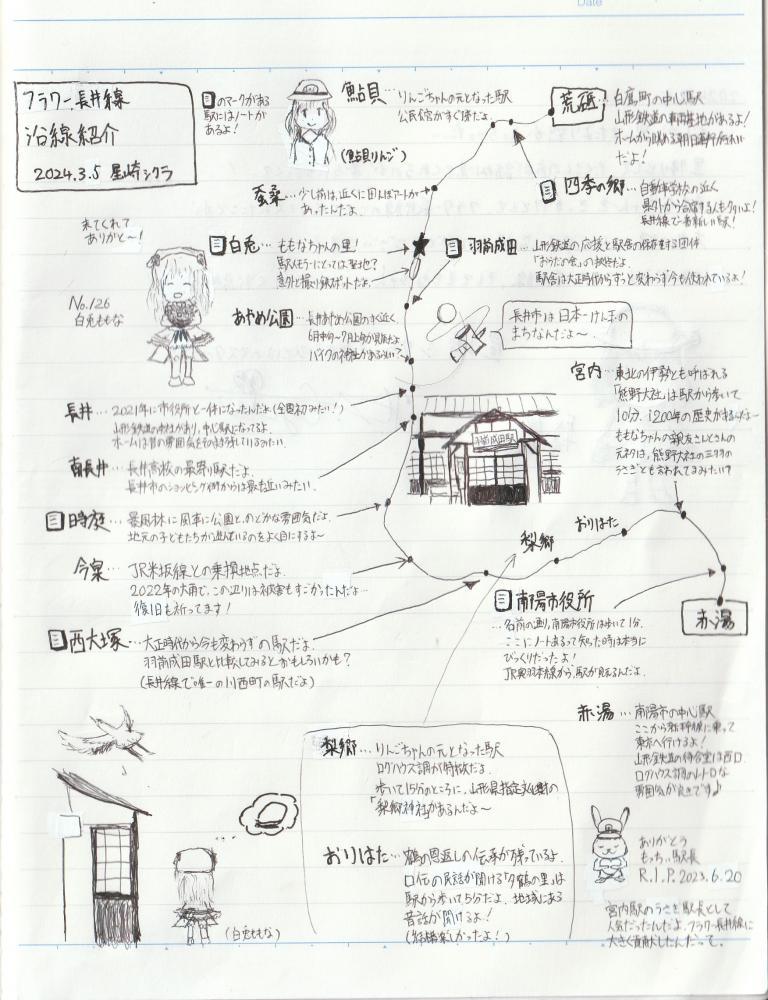 Date
フラワー長井線
沿線紹介
2024.3.5 星崎シクラ
のマークがある
駅にはノートが
あるよ!
鮎貝…りんごちゃんの元となった駅
公民館がすぐ傍だよ。
(鮎貝りんご)
荒砥…白鷹町の中心駅
山形鉄道の車両基地があるよ!
ホームから眺める朝日連峰がきれい
だよ!
蚕桑…少し前は、近くに田んぼアートが
あったんだよ。
四季の郷…自動車学校の近く
県外から合宿する人も多いよ!
長井線で一番新しい駅!
来てくれて
ありがと〜!
No.126
白兎ももな
白兎…ももなちゃんの里!
駅メモラーにとっては聖地?
意外と撮り鉄スポットだよ。
羽前成田…山形鉄道の応援と駅舎の保存をする団体
「おらだの会」の拠点だよ
駅舎は大正時代からずっと変わらず今も使われているよ!
あやめ公園…長井あやめ公園のすぐ近く。
6月中旬〜7月上旬が見頃だよ。
バイクの神社があるらしい?
長井市は日本一けん玉の
まちなんだよ〜
宮内…東北の伊勢とも呼ばれる
「熊野大社」は駅から歩いて
10分。1200年の歴史があるんだよ〜
ももなちゃんの親友さんとさんの
元ネタは、熊野大社の三羽の
うさぎとも言われてるみたい?
長井…2021年に市役所と一体になったんだよ(全国初みたい!)
山形鉄道の本社があり、中心駅になってるよ。
ホームは昔の雰囲気をそのまま残しているみたい。
羽前成田駅
南長井…長井高校の最寄り駅だよ。
長井市のショッピング街からは最も近いみたい。
時庭…暴風林に風車に公園と、のどかな雰囲気だよ。
地元の子どもたちが遊んでいるのをよく目にするよ〜
今泉…JR米坂線との乗換地点だよ。
2022年の大雨で、この辺りは被害もすごかったんだよ…
復旧も祈ってます!
西大塚…大正時代から今も変わらずの駅だよ。
羽前成田駅と比較してみるとおもしろいかも?
(長井線で唯一の川西町の駅だよ)
おりはた
梨郷
南陽市役所
…名前の通り、南陽市役所は歩いて1分。
ここにノートあるって知った時は本当に
びっくりだったよ!
JR奥羽本線から、駅が見えるんだよ。
赤湯
赤湯…南陽市の中心駅
ここから新幹線に乗って
東京へ行けるよ!
山形鉄道の待合室は西口。
ログハウス調のレトロな
雰囲気が良きです♪
梨郷…りんごちゃんの元となった駅
ログハウス調が特徴だよ。
歩いて15分のところに、山形県指定文化財の
「梨郷神社」があるんだよ〜
おりはた…鶴の恩返しの伝承が残っているよ。
口伝の民話が聞ける「夕鶴の里」は
駅から歩いて5分だよ。地域にある
昔話が聞けるよ!
(結構楽しかったよ!)
(白兎ももな)
ありがとう
もっちぃ駅長
R.I.P.2023.6.20
宮内駅のうさぎ駅長として
人気だったんだよ。フラワー長井線に
大きく貢献したんだって。